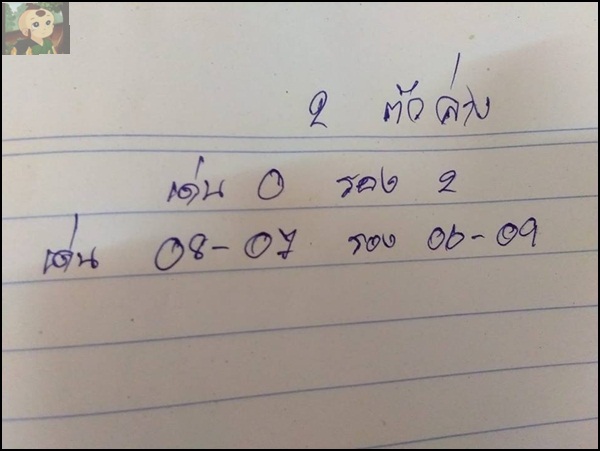 2 ตัวล่าง
เด่น 0 รอง 2
เด่น 08-07 รอง 06-09